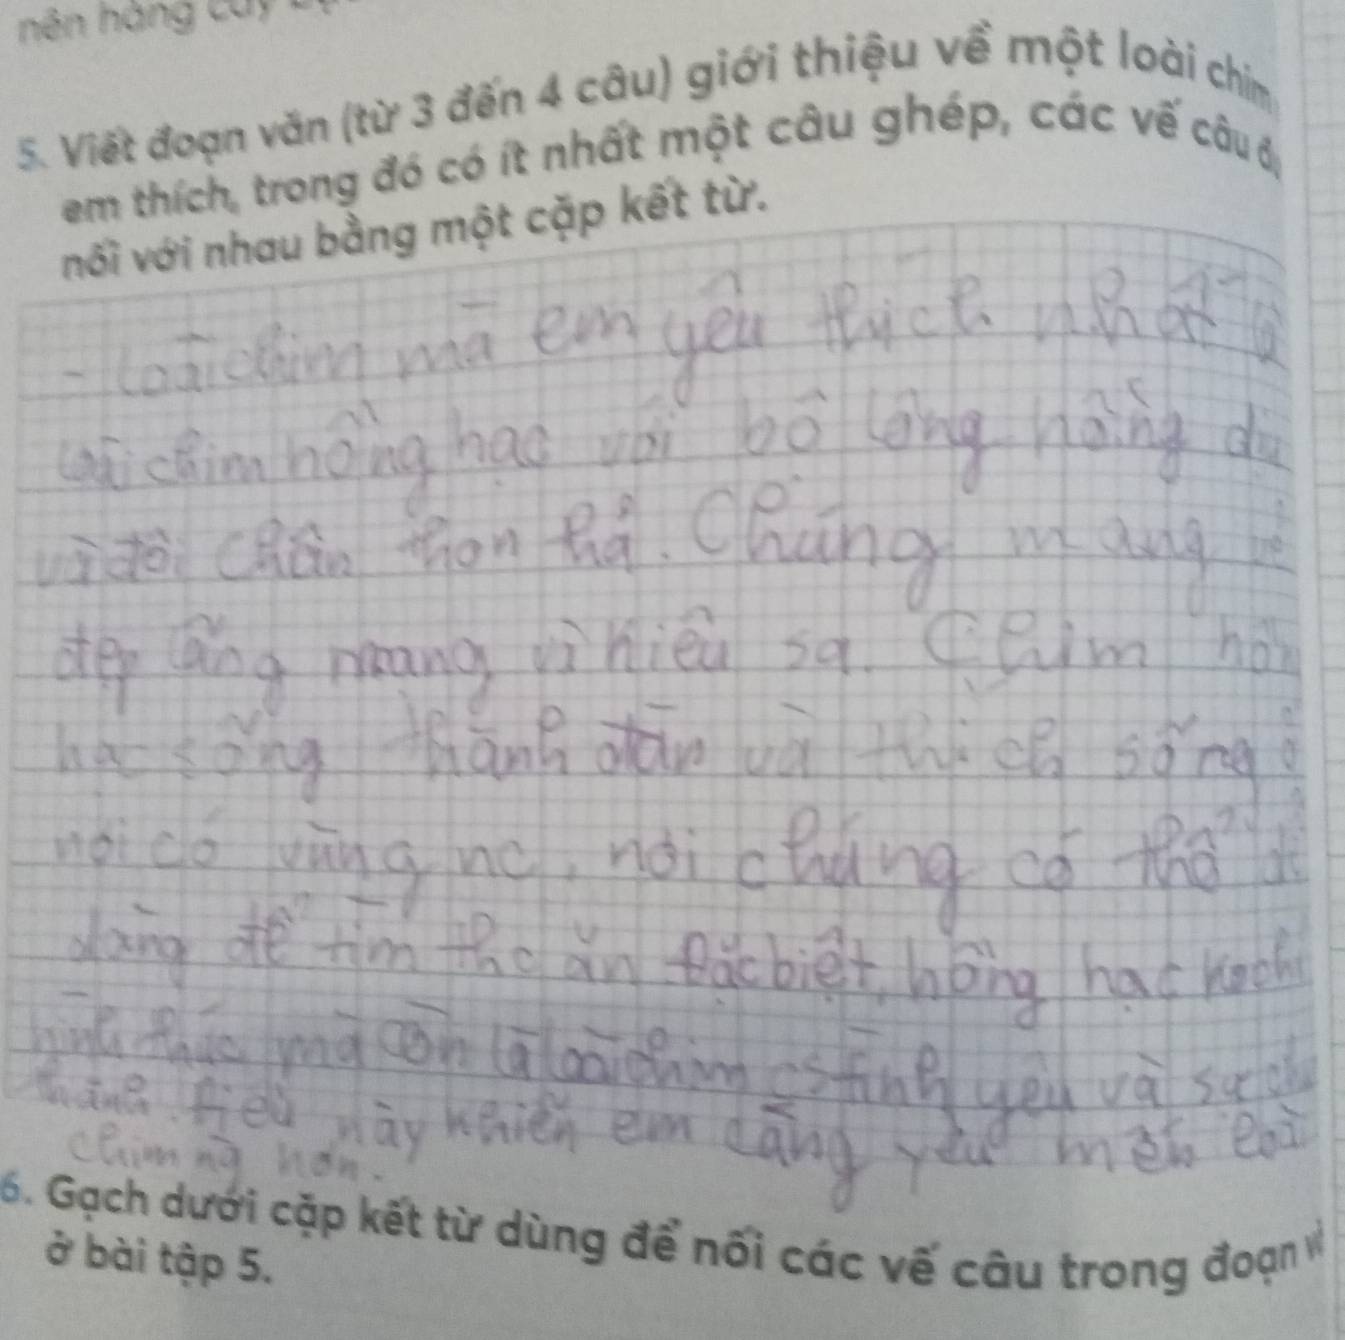 nên hàng cây
5. Viết đoạn văn (từ 3 đến 4 câu) giới thiệu về một loài chim
em thích, trong đó có ít nhất một câu ghép, các vế câu đ
nối với nhau bằng một cặp kết từ.
- Loài chim mà em yêu thích nhất là
loài chim hồng hạc với bộ lông hồng dịu
và đôi chân thon thả. Chúng mang vẻ
đẹp lãng mạng và hiếu sa. Chim hồn
hạ sống thành đàn và thích sống ở
nơi có vùng nc, nơi chúng có thể dễ
dàng để tìm thc ăn Đặc biệt, hồng hạc
hình thức mà còn là loài chim cs tính yêu và sự
thành. Điều này khiến em càng yêu mến loài
chim ng hơn.
6. Gạch dưới cặp kết từ dùng để nối các vế câu trong đoạn v
ở bài tập 5.